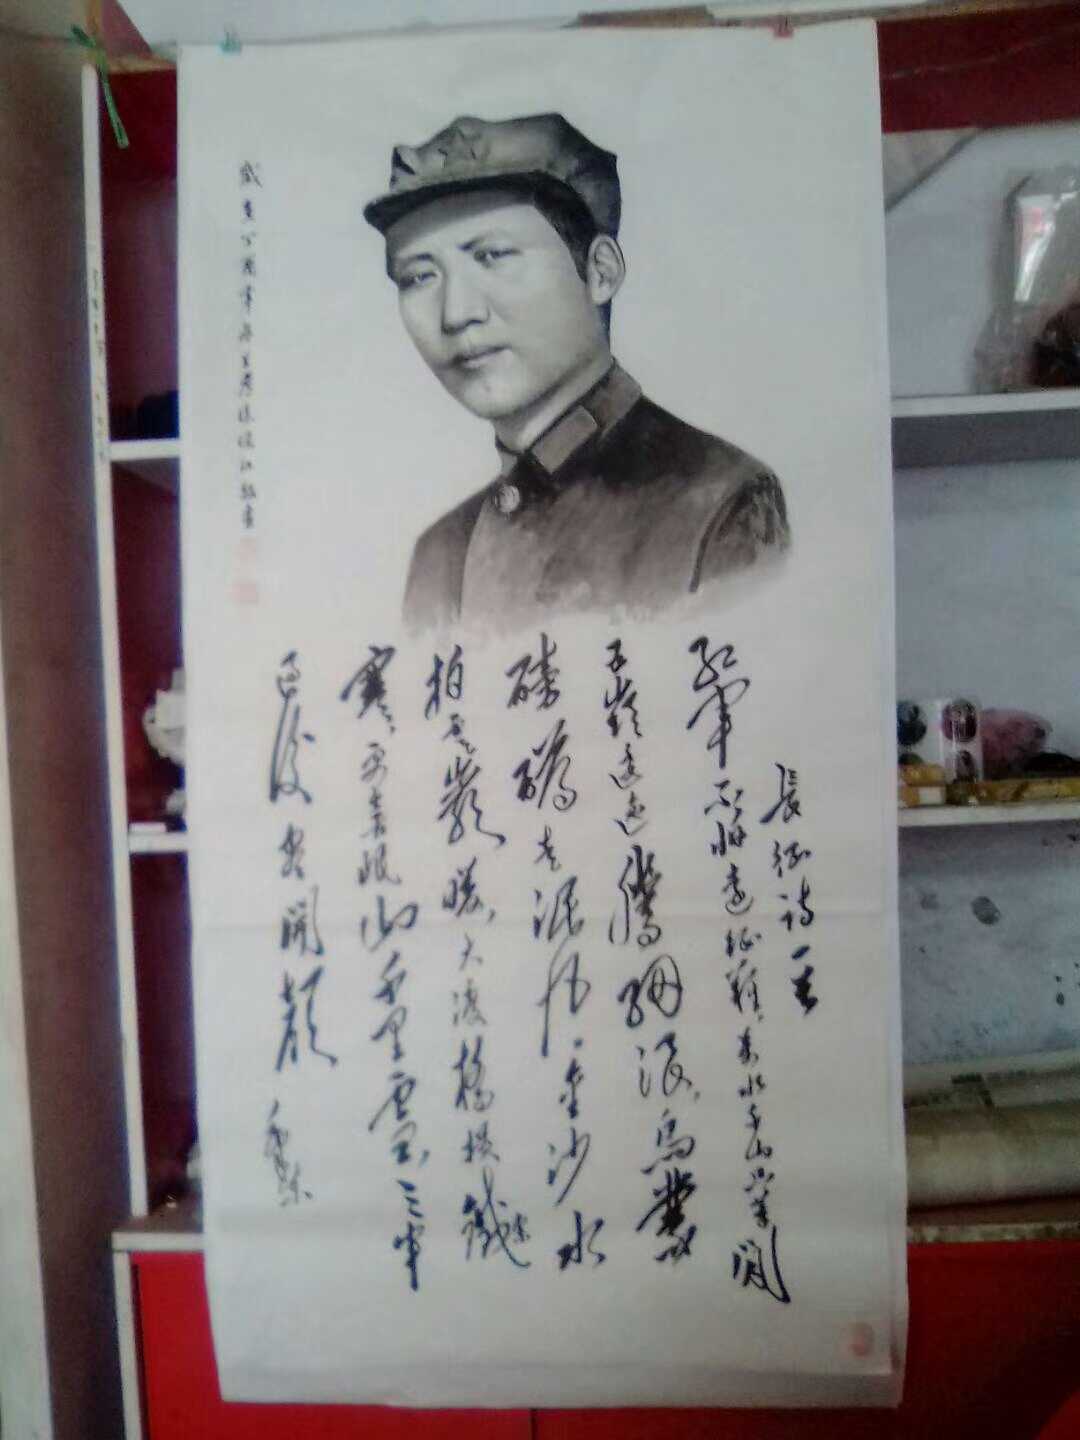 長征诗一首
红軍不怕遠征難，萬水千山只等閒
五嶺逶迤騰細浪，烏蒙
磅礴走泥丸，金沙水
拍雲崖暖，大渡橋横鐵索
寒，更喜岷山千里雪，三軍
過後盡開顏 毛澤东